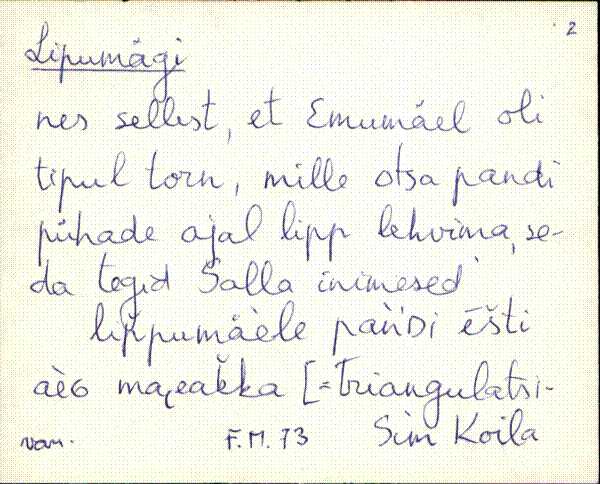 2
Lipumägi
nes sellest, et Emumäel oli
tipul torn, mille otsa pandi
pühade ajal lipp lehvima, se-
da tegid Salla inimesed
lippumäèle pàǹDi ēšti
aèG [=Triangulatsi-
van. F.M. 73 Sim Koila